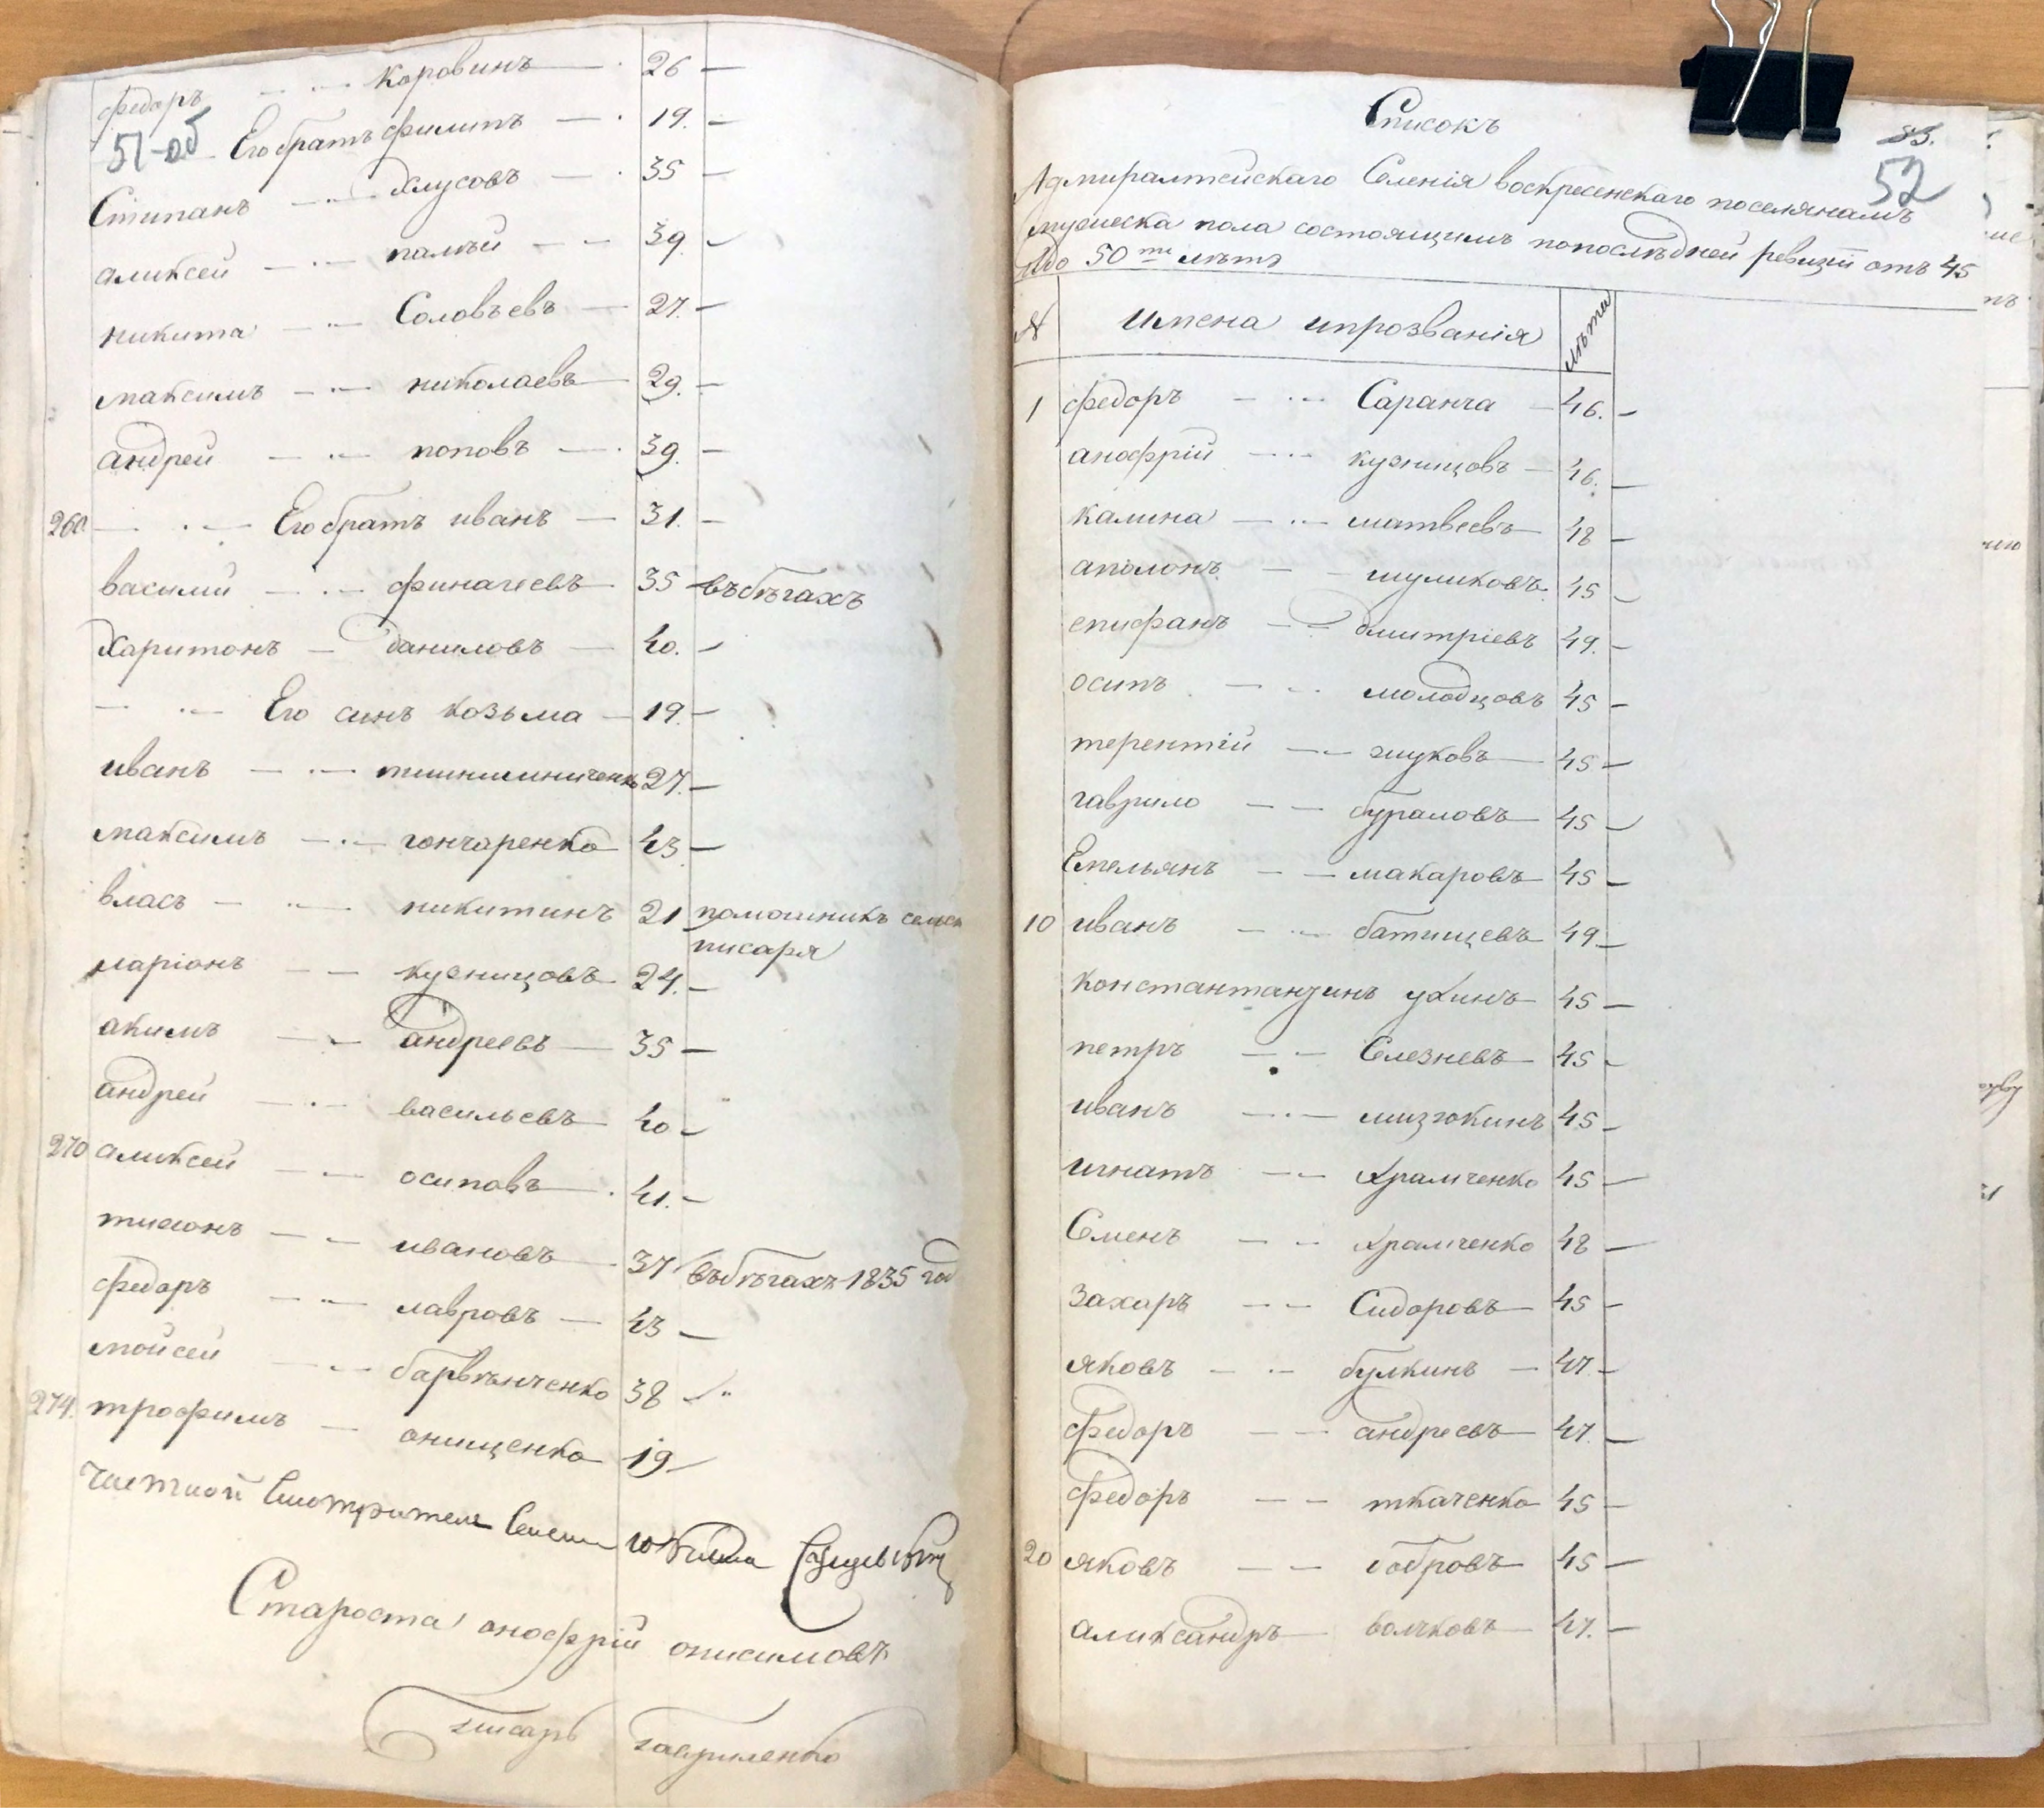 федоръ коровинъ 26
51-об
Его братъ филипъ 19.
Стипанъ хлусовъ 35
аликсей палъй 39
никита Соловьевъ 27.
максимъ николаевъ 29.
андрей поповъ 39.
260. Его братъ иванъ 31.
василий финагеевъ 35 въ бѣгахъ
харитонъ даниловъ 40.
Его синъ козьма 19.
иванъ 27.
максимъ гончаренко 43
власъ никитинъ 21 помошникъ сельск
писаря
ларіонъ кузницовъ 24.
акимъ андреевъ 35
андрей васильевъ 40
270 аликсей осиповъ 41.
тихонъ ивановъ 37 въ бѣгахъ 1835 год
федоръ лавровъ 43
мойсей барвѣнченко 38
274. трофимъ онищенко 19
Смотритель
Староста анофрій онисимовъ
писарь гавриленко
Списокъ
83.
52
Адмиралтейскаго Селенія воскресенскаго поселянамъ
мужеска пола состоящимъ попослѣдней ревизіи отъ 45
до 50ти лѣтъ
№ Имена ипрозванія лѣта
1 федоръ Саранча 46.
анофрій кузницовъ 46.
калина матвеевъ 48
аполонъ шуликовъ 45
епифанъ дмитріевъ 49.
осипъ молодцовъ 45
терентій жуковъ 45
гаврило бураловъ 45
Емельянъ макаровъ 45
10 иванъ батищевъ 49
константантинъ ухинъ 45
петръ Селезневъ 45
иванъ мизюкинъ 45
игнатъ храмченко 45
Семенъ храмченко 48
захаръ Сидоровъ 45
яковъ булкинъ 47
федоръ андреевъ 47
федоръ ткаченко 45
20 яковъ бобровъ 45
аликсандръ волчковъ 47.